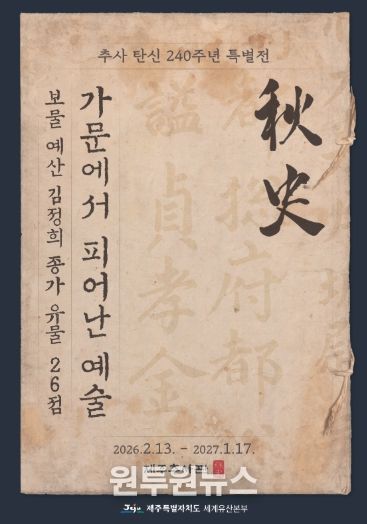 추사 탄신 240주년 특별전
秋史
가문에서 피어난 예술
보물 예산 김정희 종가 유물 26점
諡貞孝金
府都
2026.2.13. - 2027.1.17.
제주추사관
원투원뉴스
Jeju 제주특별자치도 세계유산본부